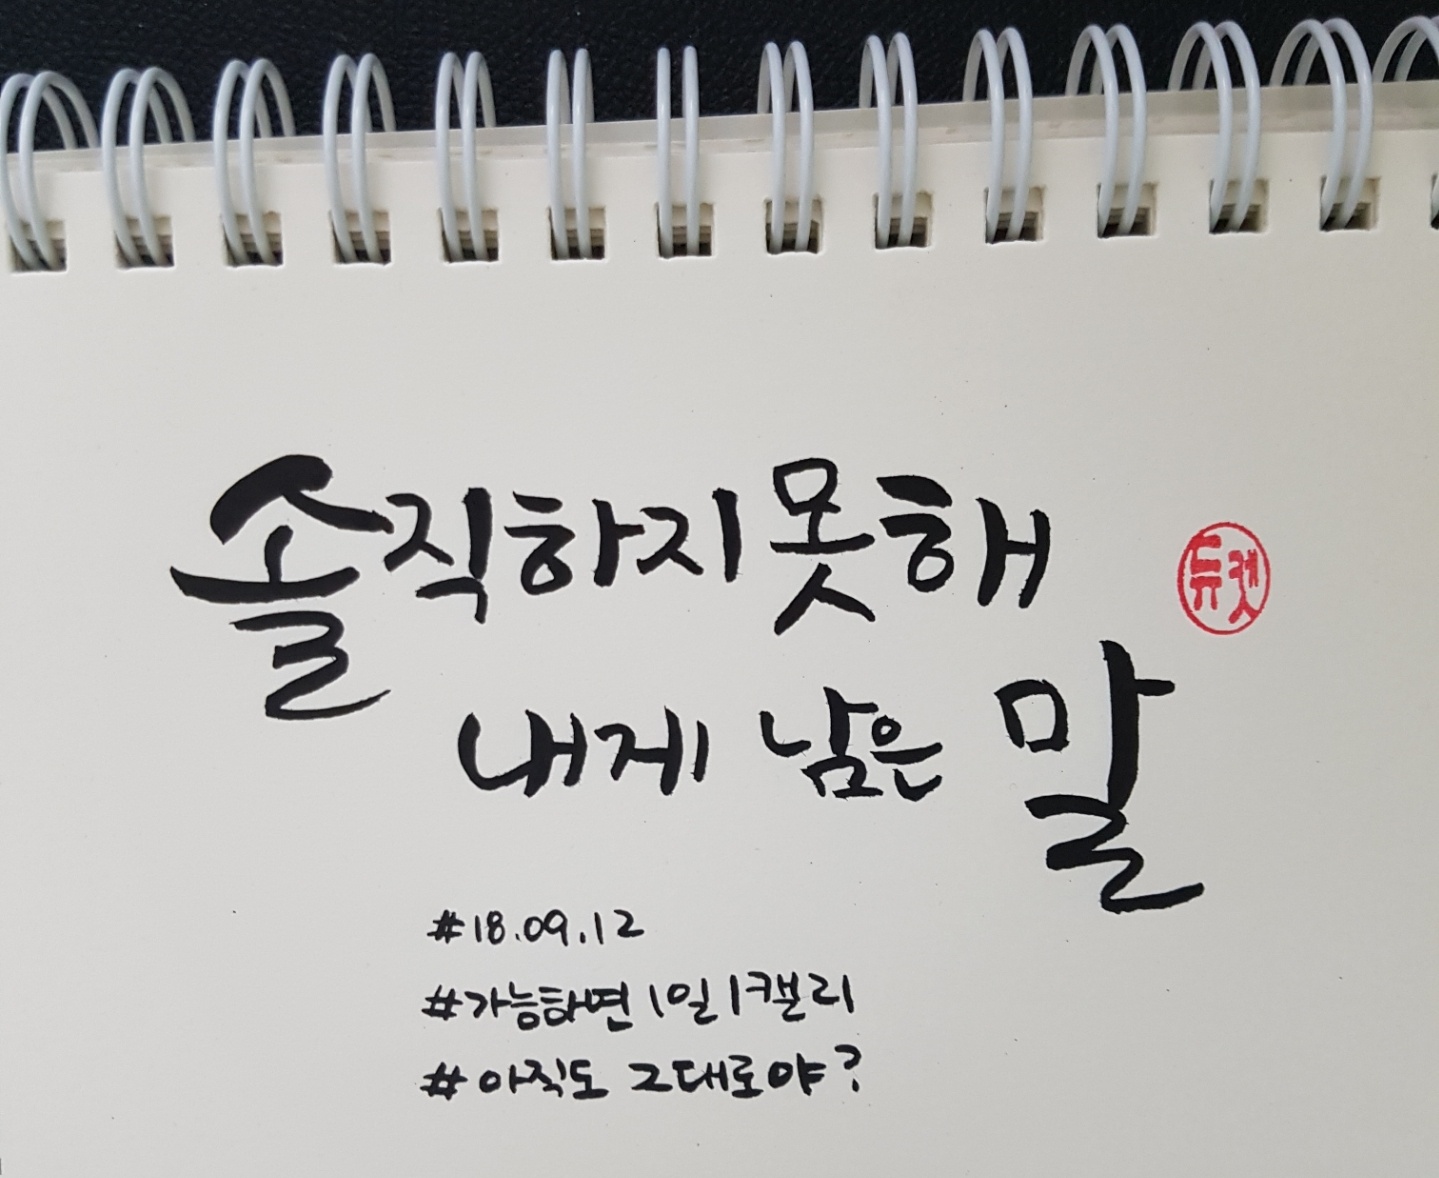 솔직하지 못해
듀캣
내게 남은 말
#18.09.12
#가능하면1일1캘리
#아직도 그대로야?